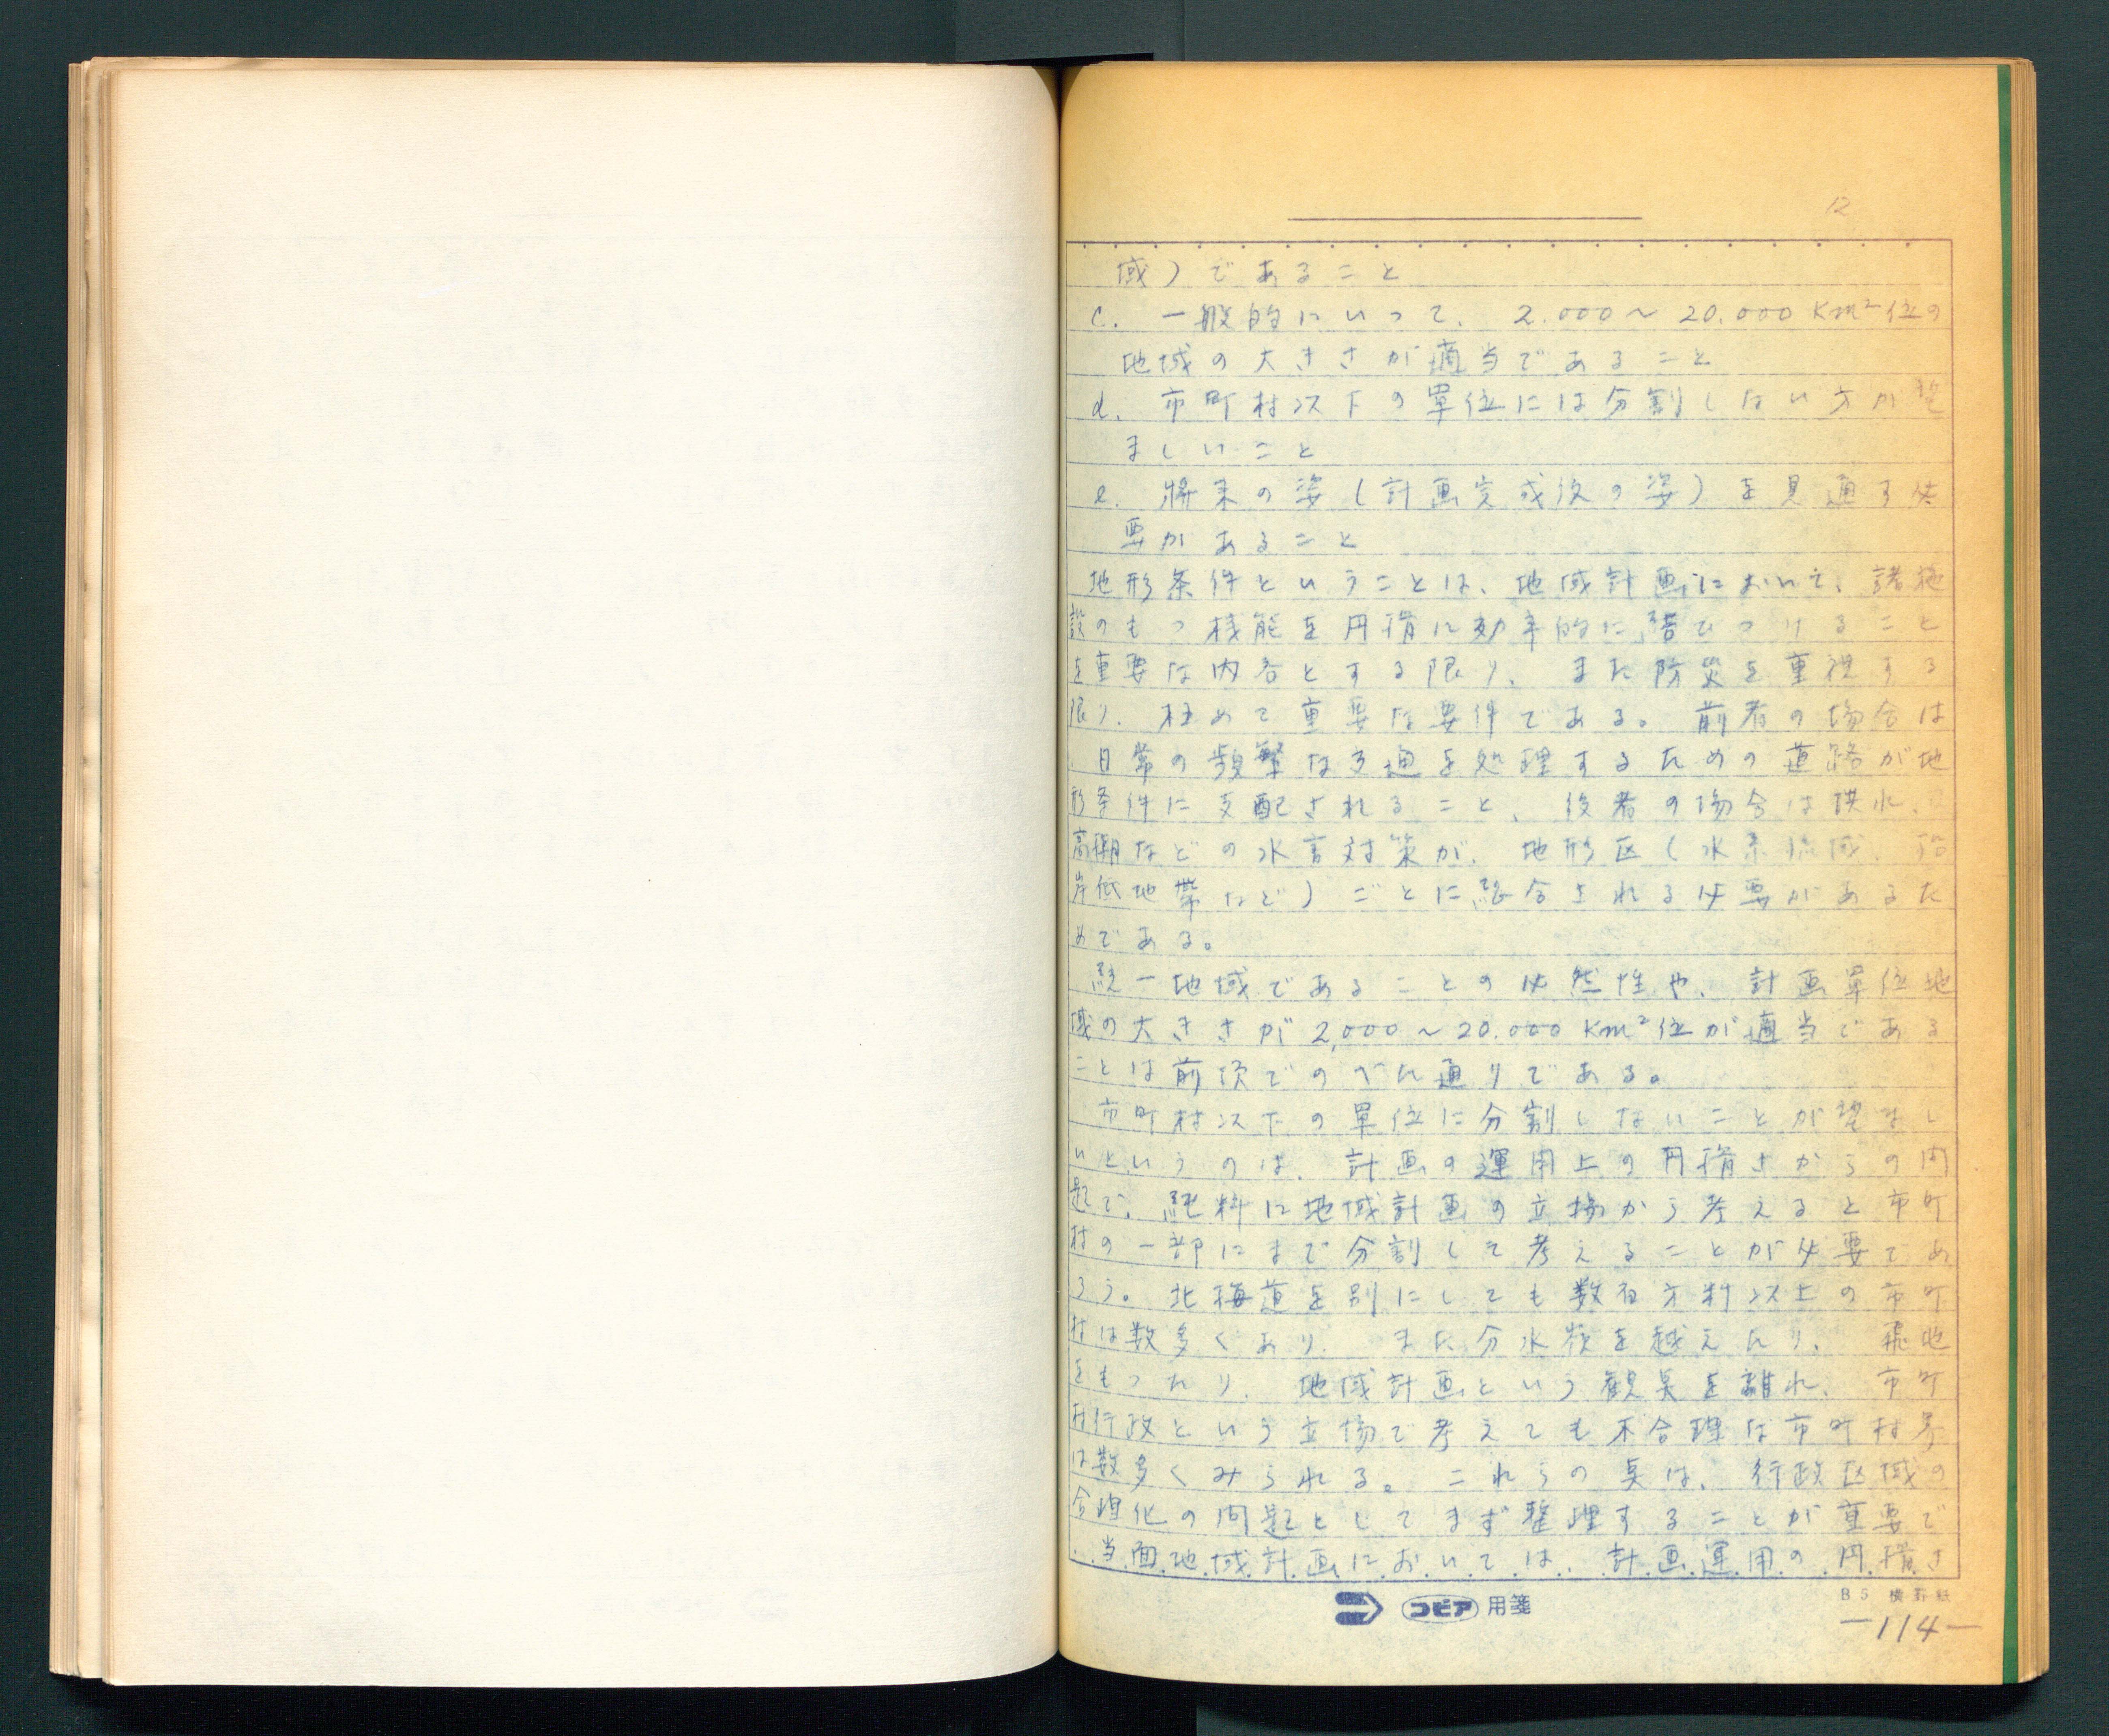 12
域)であること
c. 一般的にいって、2.000～20.000 Km²位の
地域の大きさが適当であること
d. 市町村以下の単位には分割しない方が望
ましいこと
e. 将来の姿(計画完成後の姿)を見通す必
要があること
地形条件ということは、地域計画において、諸施
設のもつ機能を円滑に効率的に結びつけること
を重要な内容とする限り、また防災を重視する
限り、極めて重要な要件である。前者の場合は
日常の頻繁な交通を処理するための道路が地
形条件に支配されること、後者の場合は洪水、
高潮などの水害対策が、地形区(水系流域、沿
岸低地帯など)ごとに総合される必要があるた
めである。
統一地域であることの必然性や、計画単位地
域の大きさが2,000～20.000 Km²位が適当である
ことは前項でのべた通りである。
市町村以下の単位に分割しないことが望まし
いというのは、計画の運用上の円滑さからの問
題で、純粋に地域計画の立場から考えると市町
村の一部にまで分割して考えることが必要であ
ろう。北海道を別にしても数百方粁以上の市町
村は数多くあり、また分水嶺を越えたり、飛地
をもったり、地域計画という観点を離れ、市町
村行政という立場で考えても不合理な市町村界
は数多くみられる。これらの点は、行政区域の
合理化の問題としてまず整理することが重要で
当面地域計画においては、計画運用の円滑さ
コピア 用箋
B5 横罫紙
－114－